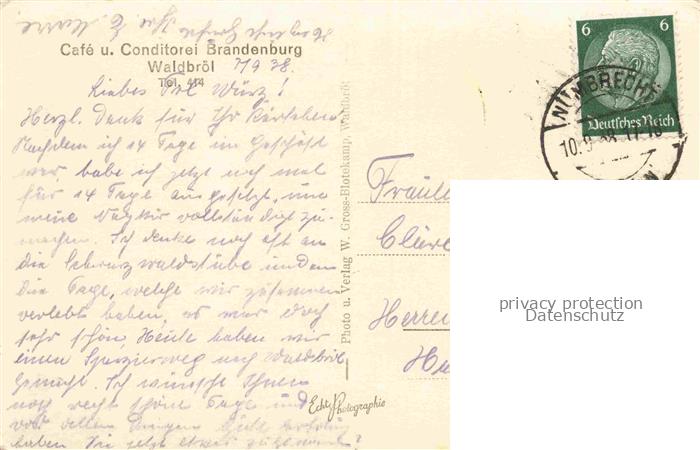 Café u. Conditorei Brandenburg
Waldbröl
Tel. 414
7/9 38.
Liebes Frl. Würz!
Herzl. Dank für Ihr
Nachdem ich 14 Tage im Geschäft
war, habe ich jetzt noch mal
für 14 Tage ausgesetzt, um
meine vollständig zu
machen. Ich denke noch oft an
die Schwarzwaldstube und an
die Tage, welche wir zusammen
verlebt haben, es war doch
sehr schön, Heute haben wir
einen Spazierweg nach Waldbröl
gemacht. Ich wünsche Ihnen
noch recht schöne Tage und
vor allen Dingen gute Erholung
haben Sie jetzt etwas zugenommen?
Photo u. Verlag W. Gross-Blotekamp, Waldbröl
Echte Photographie
6 6
Deutsches Reich
NÜMBRECHT
10.9.38.17-18
Fräulein
Cläre
Herren
privacy protection
Datenschutz